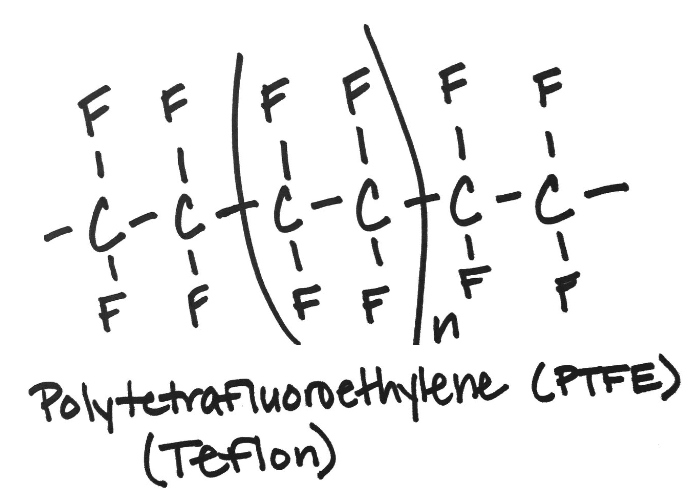 F F F F F F
- C - C - C - C - C - C -
F F F F F F
n
Polytetrafluoroethylene (PTFE)
(Teflon)